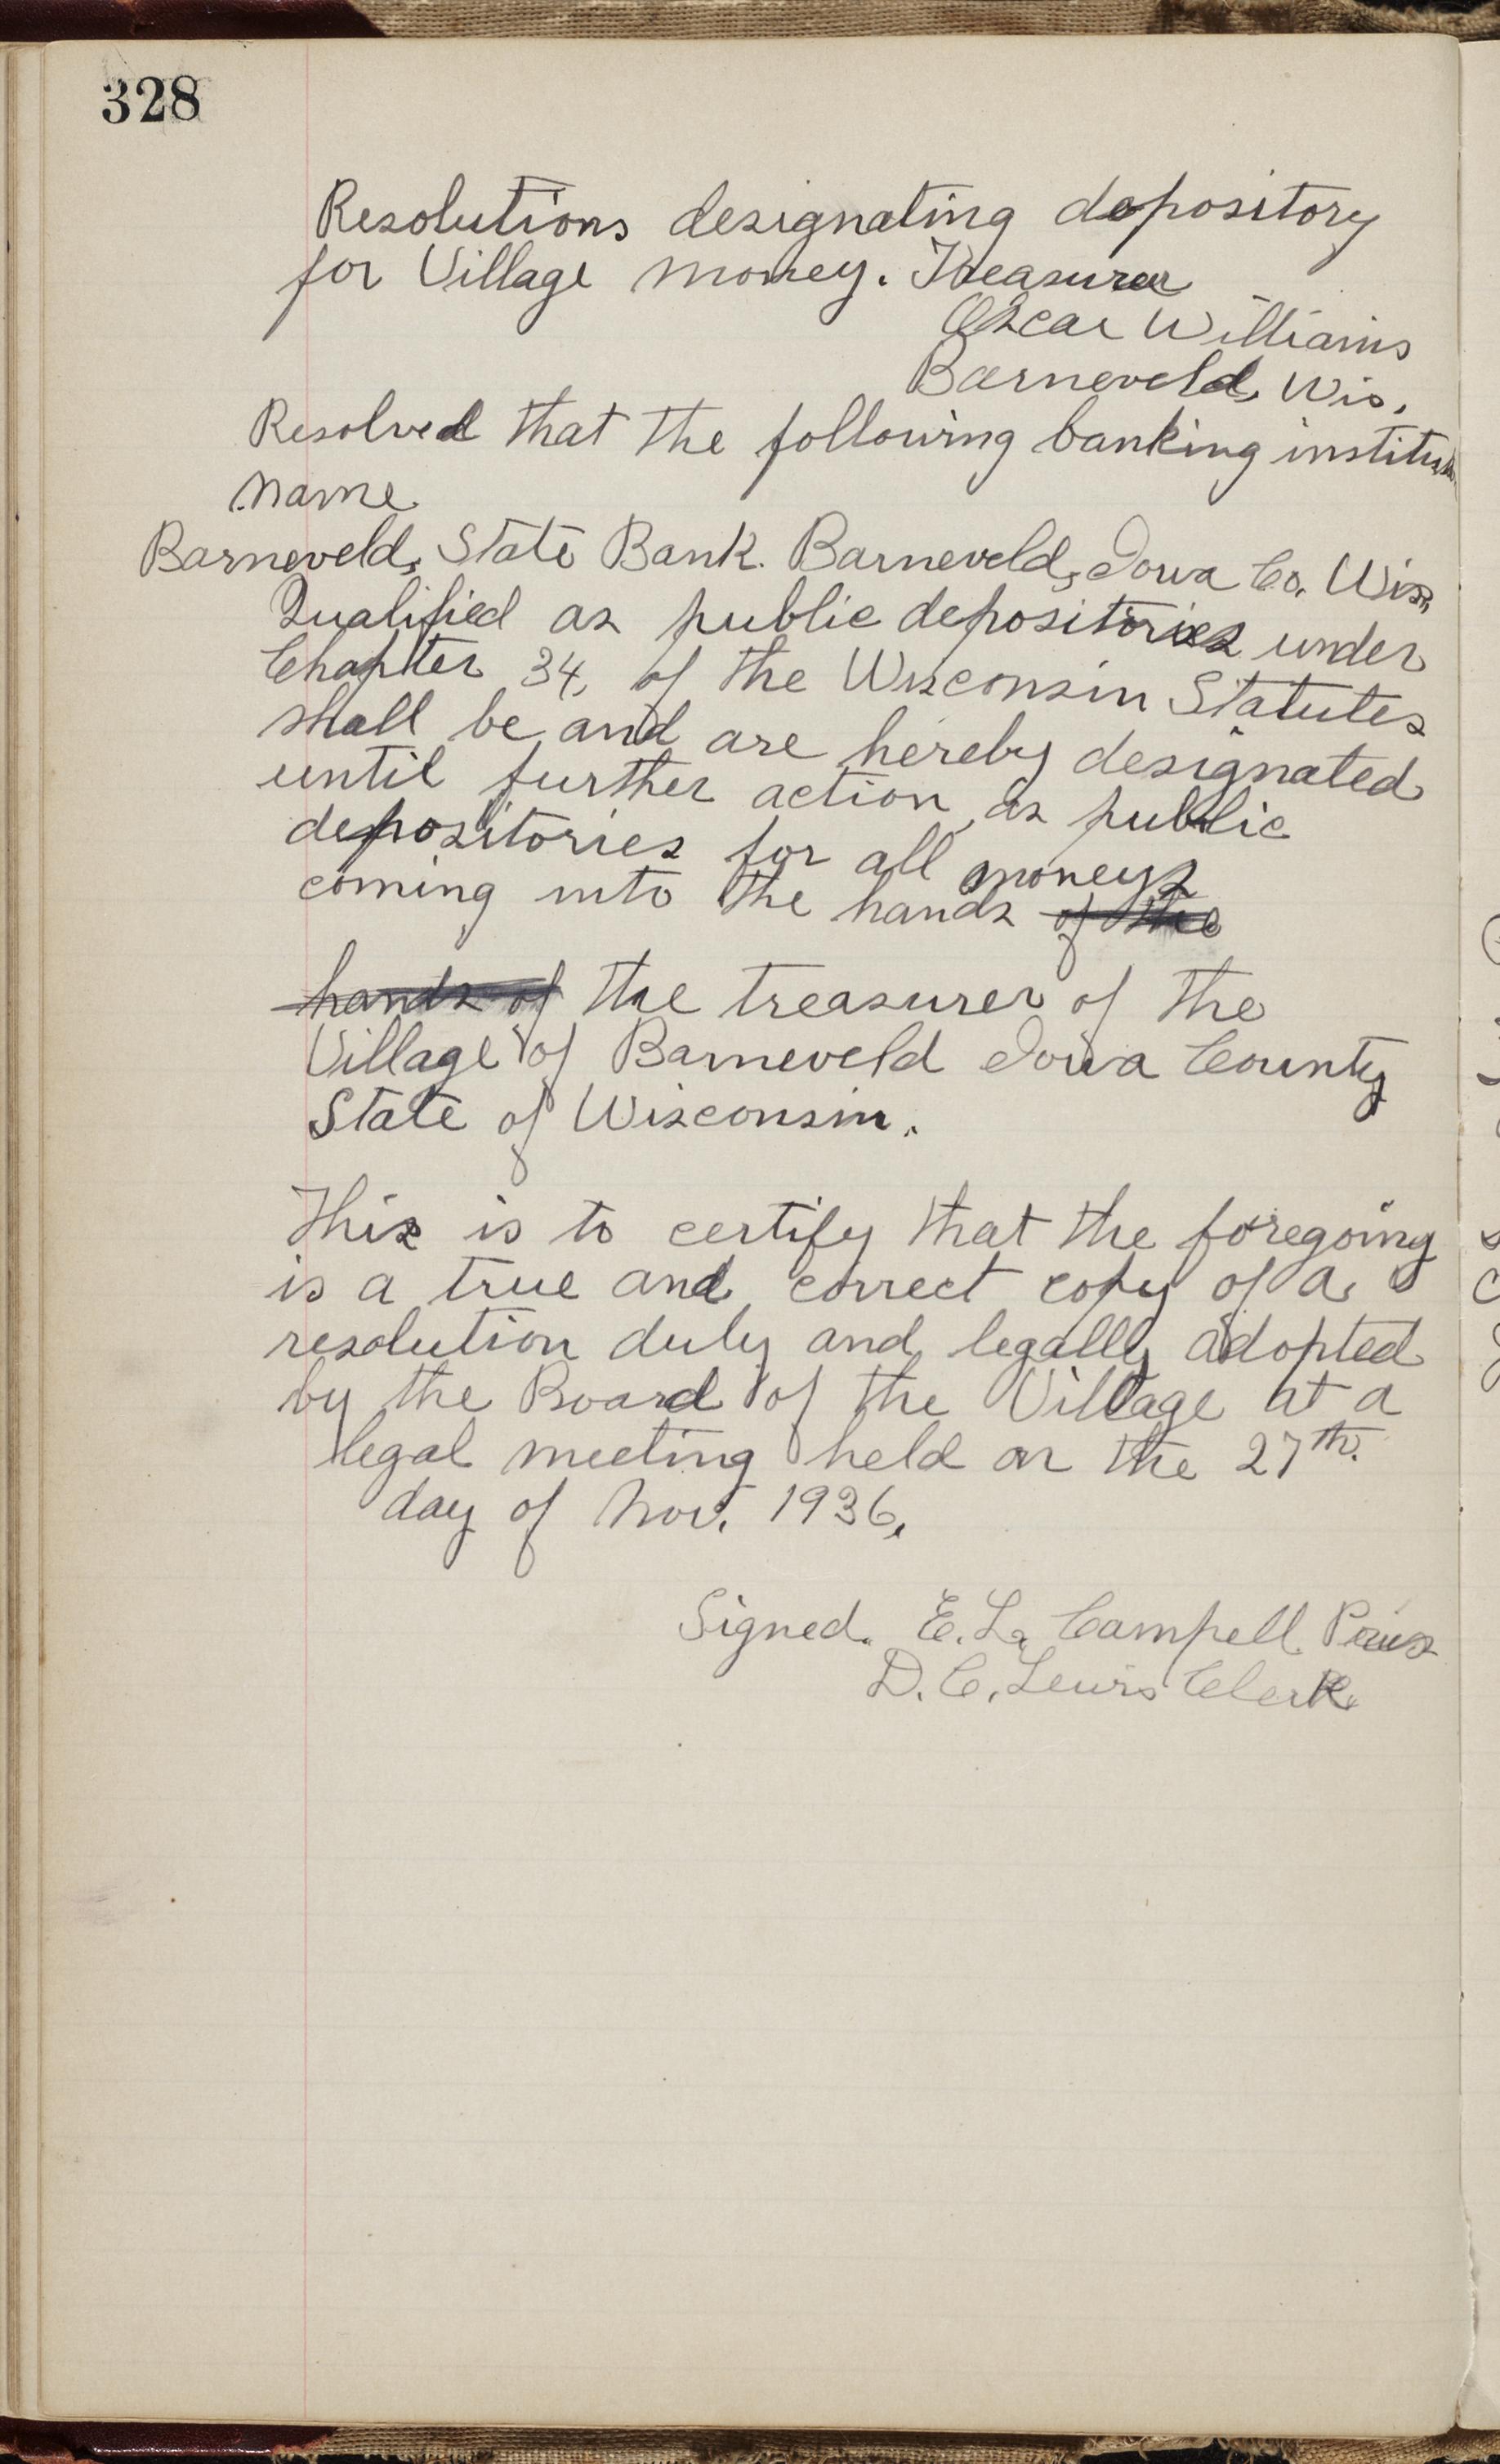 328
Resolutions designating depository
for Village money. Treasurer
Oscar Williams
Barneveld, Wis.
Resolved that the following banking institution
Name
Barneveld, State Bank. Barneveld, Iowa Co. Wis.
Qualified as public depositories under
Chapter 34, of the Wisconsin Statutes
shall be and are hereby designated
until further action, as public
depositories for all moneys
coming into the hands of the
hands of the treasurer of the
Village of Barneveld Iowa County
State of Wisconsin.
This is to certify that the foregoing
is a true and correct copy of a
resolution duly and legally adopted
by the Board of the Village at a
legal meeting held on the 27th.
day of Nov. 1936.
Signed. E. L. Campell. Pres
D. C. Lewis Clerk